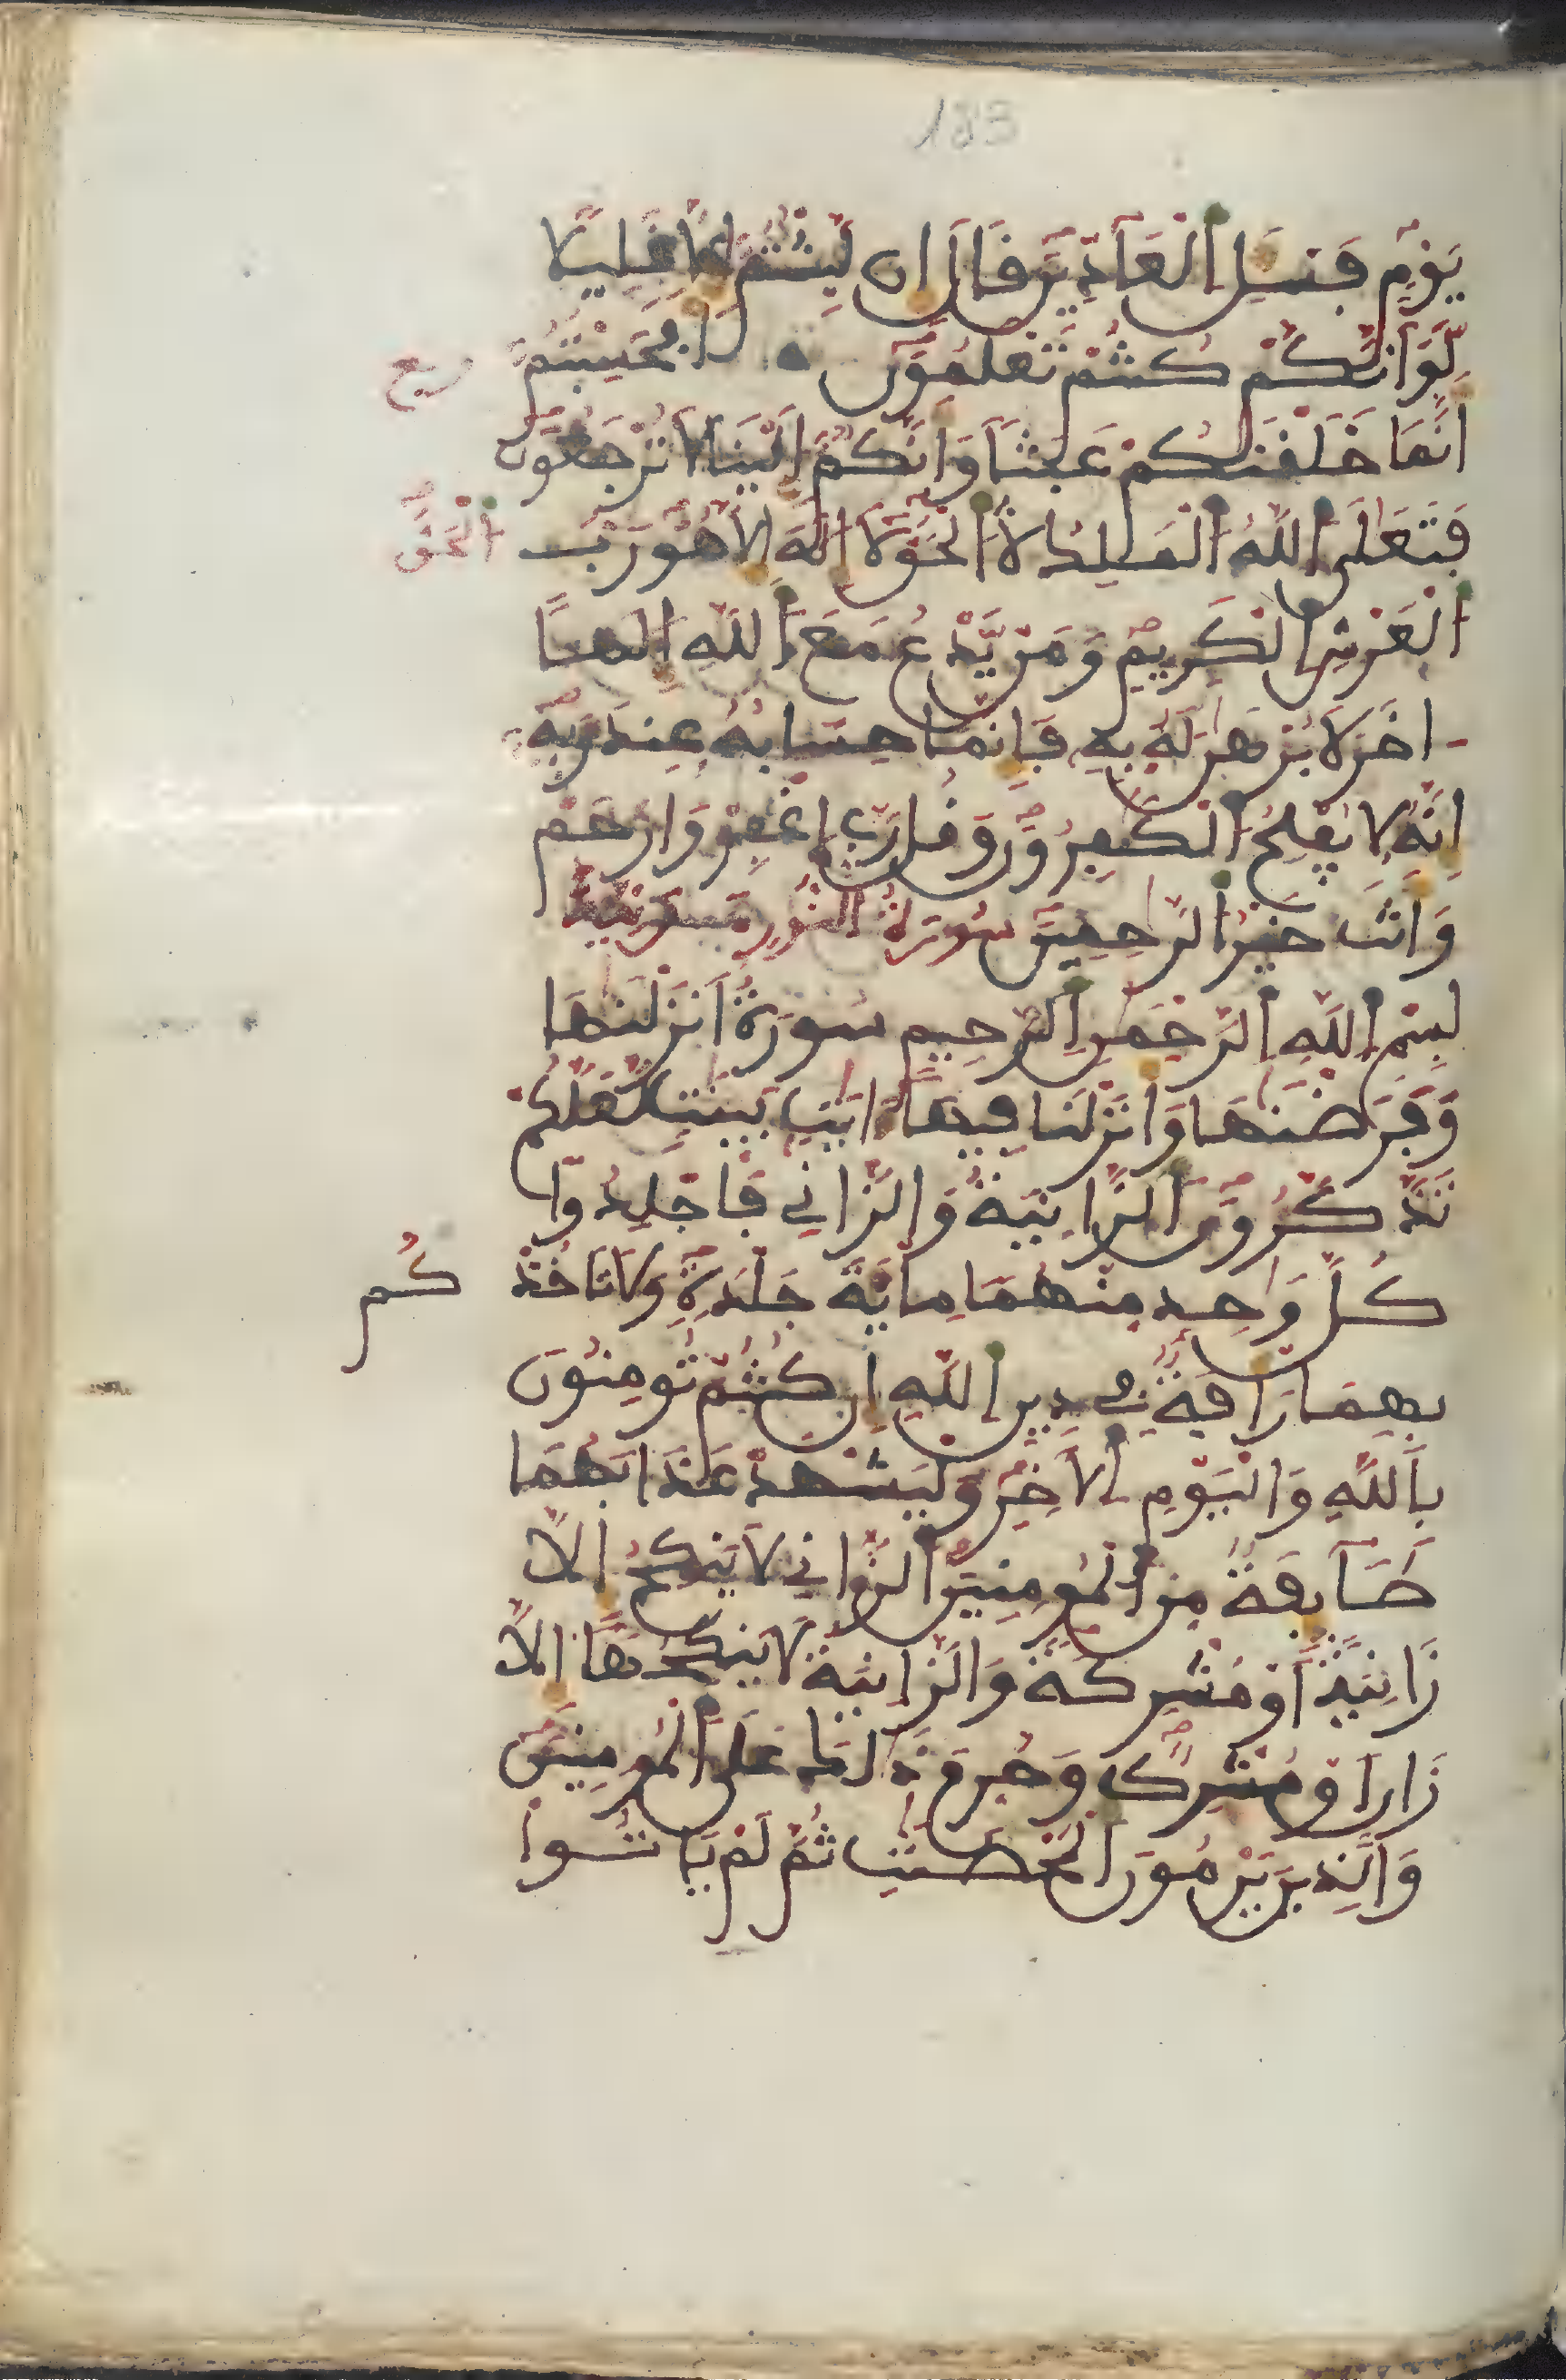 183
يَوْمٍ فَسْـَٔلِ اِ۬لْعَآدِّينَ قَالَ إِن لَّبِثْتُمْ إِلَّا قَلِيلًا
لَّوَ اَنَّكُمْ كُنتُمْ تَعْلَمُونَ أَفَحَسِبْتُمُ
أَنَّمَا خَلَقْنَٰكُمْ عَبَثًا وَأَنَّكُمُ إِلَيْنَا لَا تُرْجَعُونَ
فَتَعَٰلَى اَ۬للَّهُ اُ۬لْمَلِكُ اُ۬لْحَقُّ لَا إِلَٰهَ إِلَّا هُوَ رَبُّ
اُ۬لْعَرْشِ اِ۬لْكَرِيمِ وَمَنْ يَّدْعُ مَعَ اَ۬للَّهِ إِلَٰهًا
ـاخَرَ لَا بُرْهَٰنَ لَهُ بِهِ فَإِنَّمَا حِسَابُهُ عِندَ رَبِّهِ
إِنَّهُ لَا يُفْلِحُ اُ۬لْكَٰفِرُونَ وَقُل رَّبِّ اِ۪غْفِرْ وَارْحَمْ
وَأَنتَ خَيْرُ اُ۬لرَّٰحِمِينَ سُورَةُ النُّورِ مدنية
بِسْمِ اِ۬للَّهِ اِ۬لرَّحْمَٰنِ اِ۬لرَّحِيمِ سُورَةٌ أَنزَلْنَٰهَا
وَفَرَضْنَٰهَا وَأَنزَلْنَا فِيهَا ءَايَٰتٍ بَيِّنَٰتٍ لَّعَلَّكُمْ
تَذَّكَّرُونَ اَ۬لزَّانِيَةُ وَالزَّانِي فَاجْلِدُوا
كُلَّ وَٰحِدٍ مِّنْهُمَا مِاْئَةَ جَلْدَةٍ وَلَا تَاخُذْ كُم
بِهِمَا رَأْفَةٌ فِي دِينِ اِ۬للَّهِ إِن كُنتُمْ تُومِنُونَ
بِاللَّهِ وَالْيَوْمِ اِ۬لَاخِرِ وَلْيَشْهَدْ عَذَابَهُمَا
طَآئِفَةٌ مِّنَ اَ۬لْمُومِنِينَ اَ۬لزَّانِي لَا يَنكِحُ إِلَّا
زَانِيَةً أَوْ مُشْرِكَةً وَالزَّانِيَةُ لَا يَنكِحُهَا إِلَّا
زَانٍ أَوْ مُشْرِكٌ وَحُرِّمَ ذَٰلِكَ عَلَى اَ۬لْمُومِنِينَ
وَالَّذِينَ يَرْمُونَ اَ۬لْمُحْصَنَٰتِ ثُمَّ لَمْ يَاتُوا